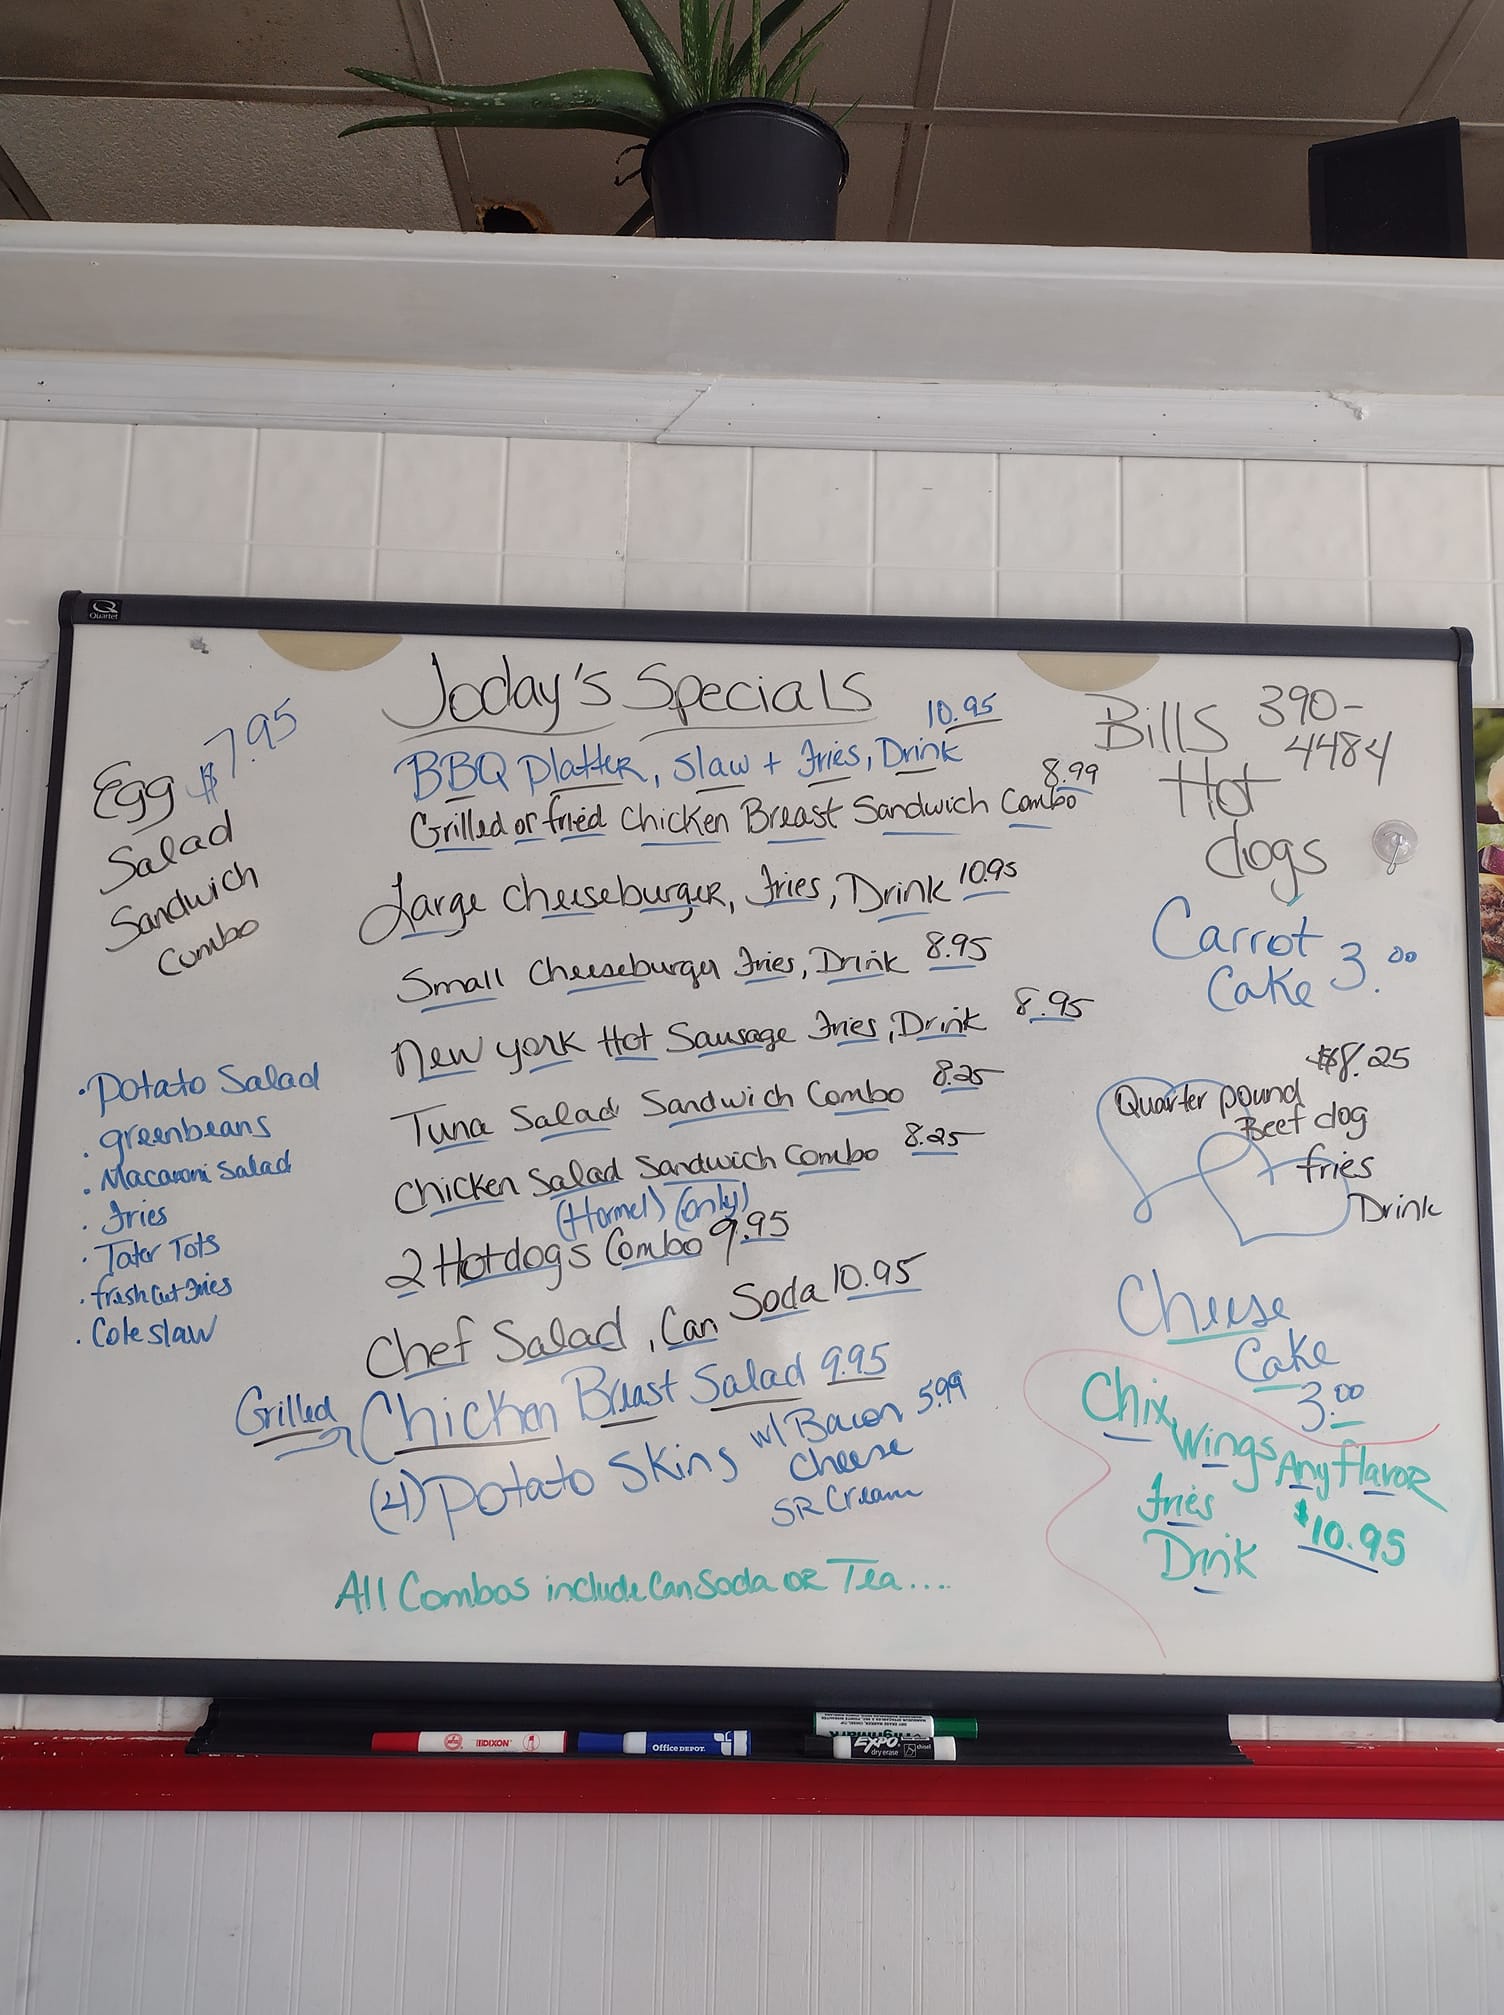 Quartet
Today's Specials
Egg $7.95
Salad
Sandwich
Combo
10.95
BBQ Platter, Slaw + Fries, Drink
8.99
Grilled or fried Chicken Breast Sandwich Combo
Large Cheeseburger, Fries, Drink 10.95
Small Cheeseburger Fries, Drink 8.95
New York Hot Sausage Fries, Drink 8.95
Tuna Salad Sandwich Combo 8.25
Chicken Salad Sandwich Combo 8.25
(Hormel) (only)
2 Hotdogs Combo 9.95
Chef Salad, Can Soda 10.95
Grilled Chicken Breast Salad 9.95
(4) Potato Skins w/ Bacon 5.99
Cheese
SR Cream
All Combos include Can Soda or Tea....
• Potato Salad
• greenbeans
• Macaroni Salad
• Fries
• Tater Tots
• fresh Cut Fries
• Cole Slaw
Bills 390-
4484
Hot
dogs
Carrot
Cake 3.00
$8.25
Quarter pound
Beef dog
+ fries
Drink
Cheese
Cake
3.00
Chix
Wings Any flavor
Fries
Drink $10.95
DIXON
Office DEPOT
EXPO
dry erase
chisel